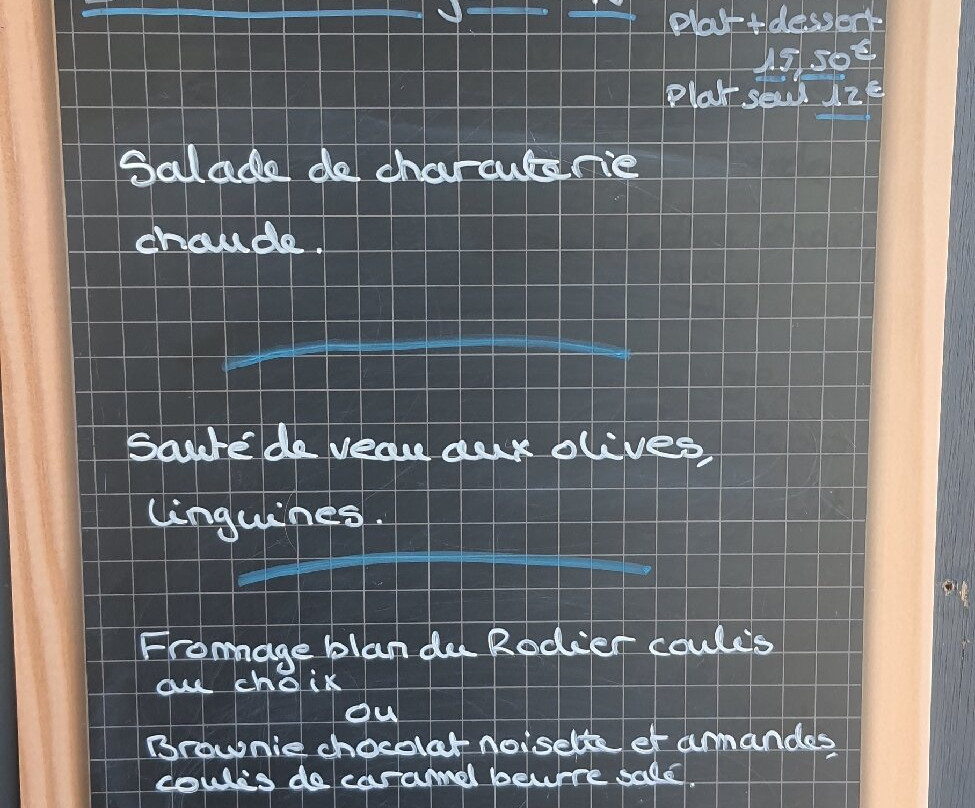 Plat + dessert
15,50€
Plat seul 12€
Salade de charcuterie
chaude.
Sauté de veau aux olives,
linguines.
Fromage blan du Rodier coulis
au choix
ou
Brownie chocolat noisette et amandes,
coulis de caramel beurre salé.